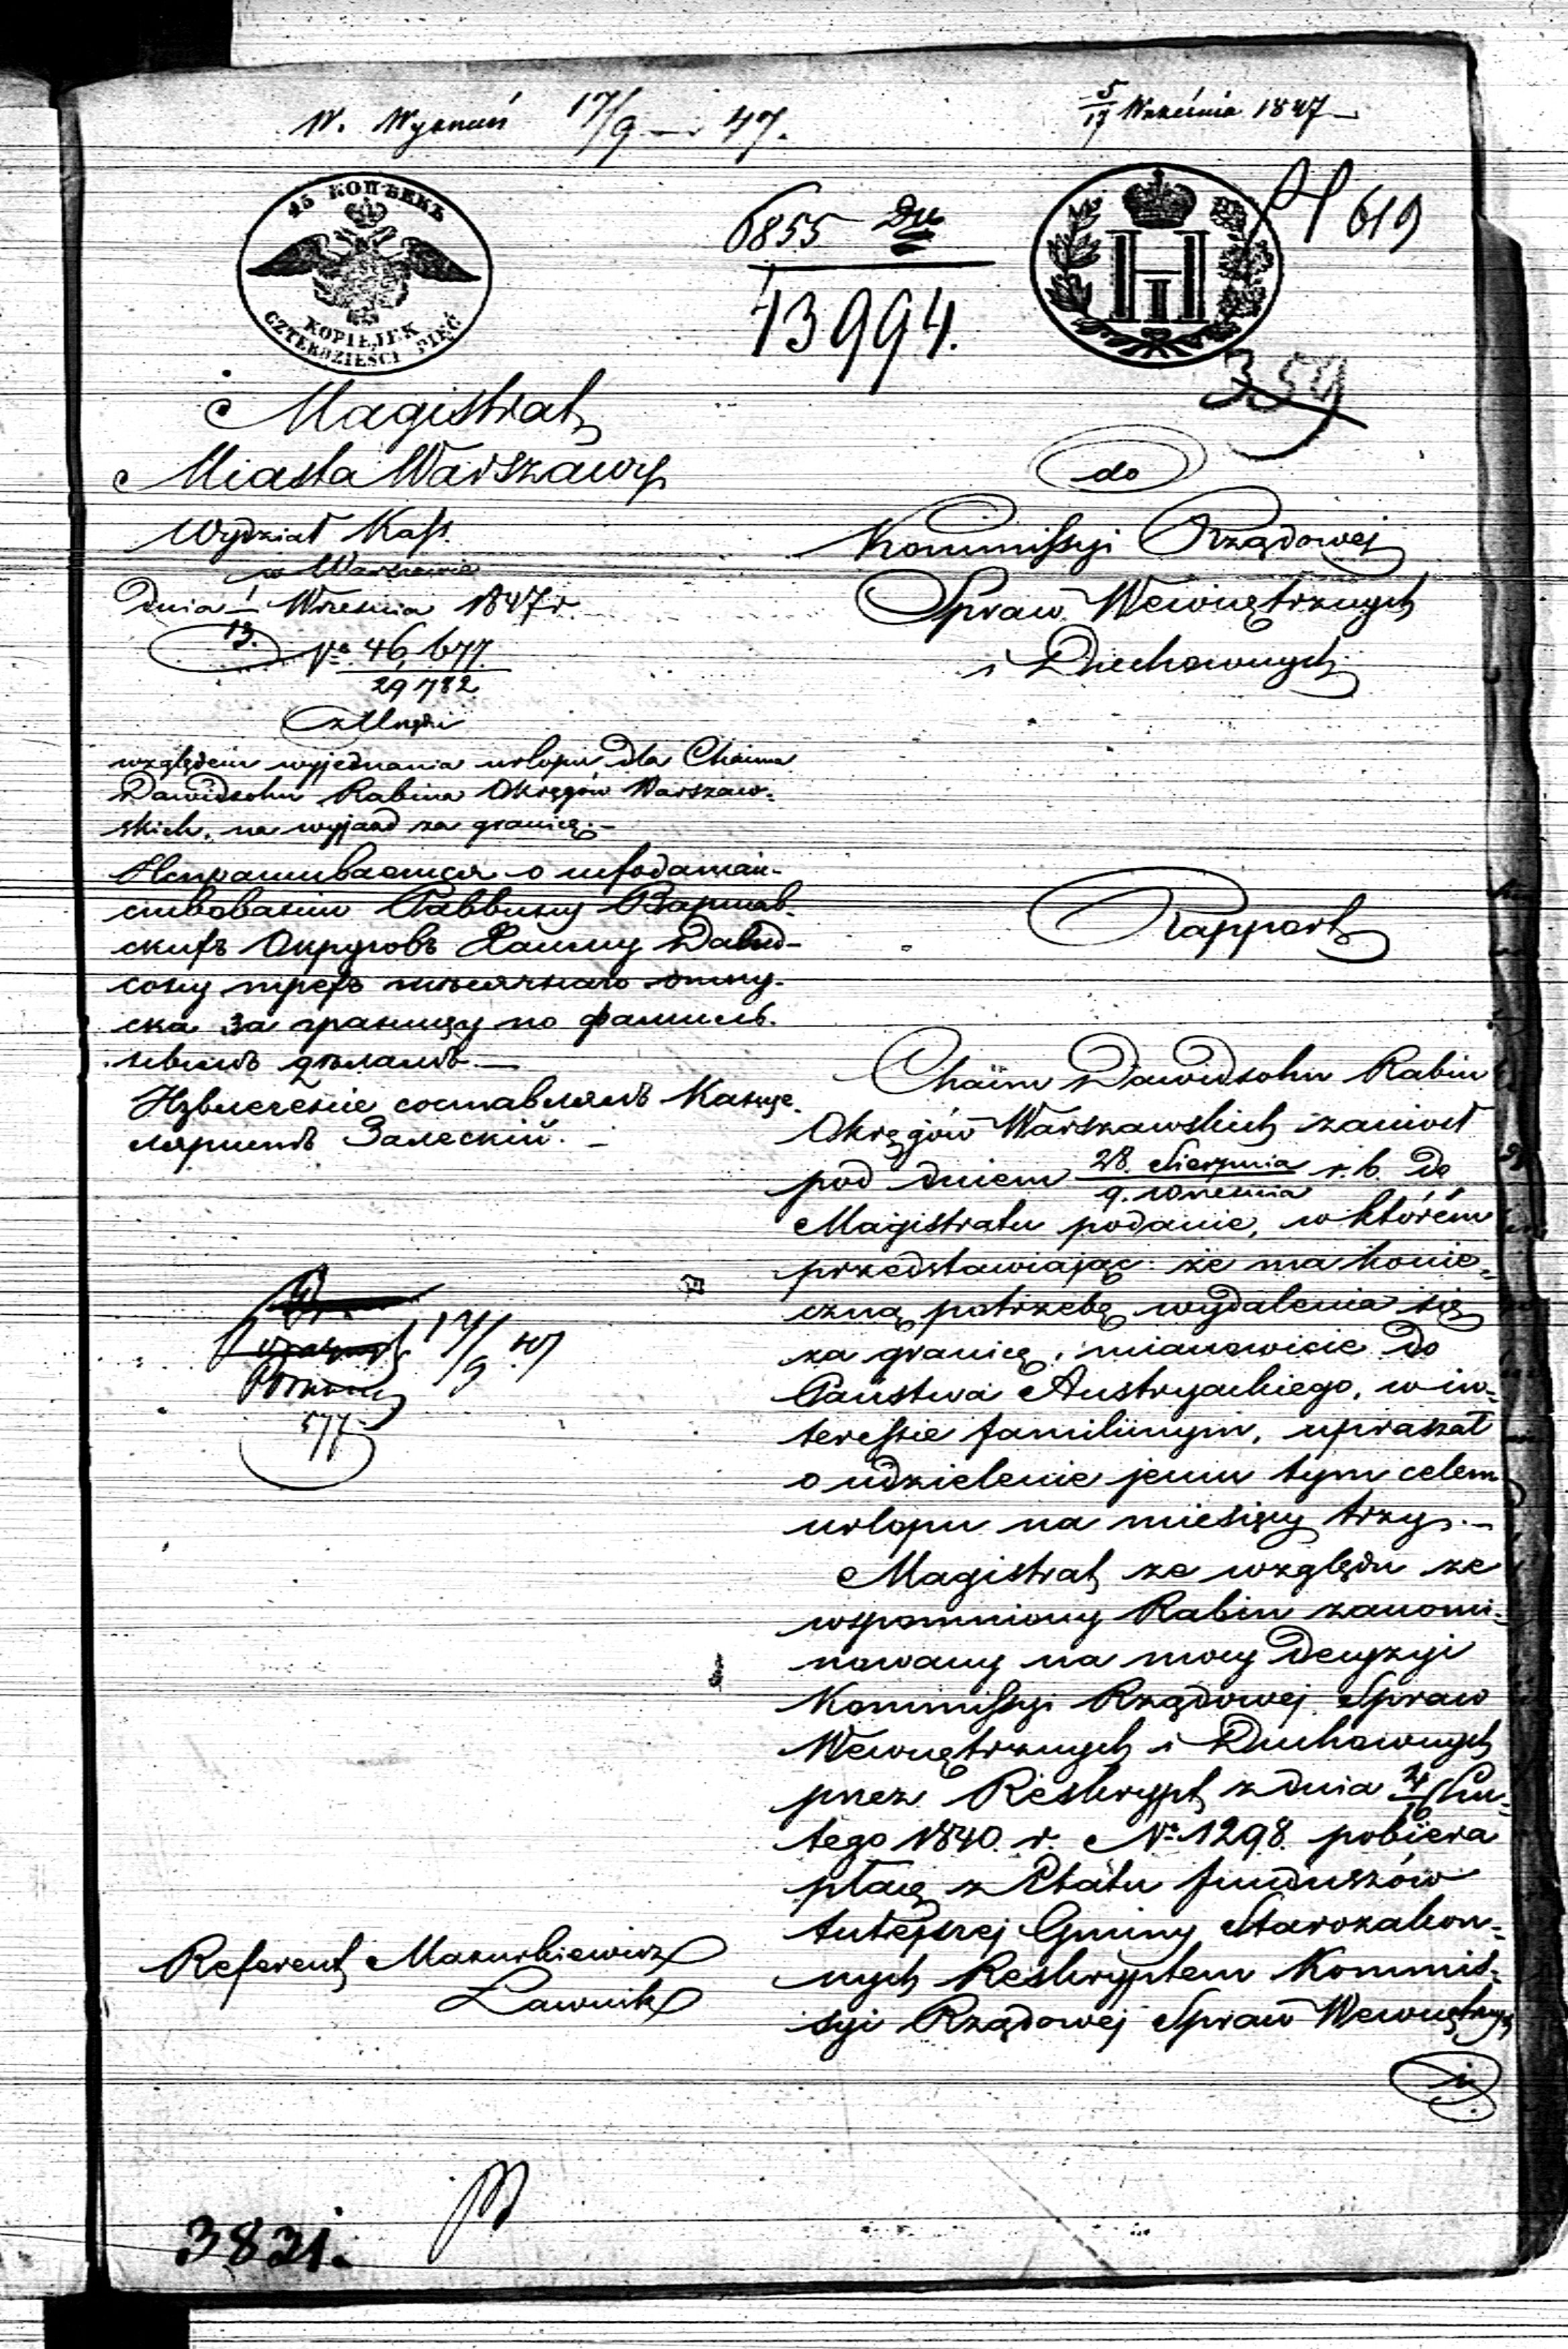 W. Wyznań 17/9 — 47.
5/17 Września 1847 —
45 КОПѢЕКЪ
KOPIEJEK
CZTERDZIEŚCI PIĘĆ
6855
13994.
619
359
Magistrat
Miasta Warszawy
Wydział Kass.
w Warszawie
dnia 1/13. Września 1847 r.
No 46,677
29782
względem wyjednania urlopu dla Chaima
Dawidsohn Rabina Okręgów Warszaw-
skich, na wyjazd za granicę.—
Испрашивается о исходатай-
ствовании Раввину Варшав-
скихъ Округовъ Хаиму Давид-
сону трехъ мѣсячнаго отпу-
ска за границу по фамиль-
нымъ дѣламъ.—
Извлеченіе составлялъ Канце-
ляристъ Залескій.—
17/9 47
577
Referent Mazurkiewicz
Ławnik
3821.
do
Kommissyi Rządowej
Spraw Wewnętrznych
i Duchownych
Rapport
Chaim Dawidsohn Rabin
Okręgów Warszawskich zaniósł
pod dniem 28. Sierpnia/9. Września r. b. do
Magistratu podanie, w którém
przedstawiając: że ma konie-
czną potrzebę wydalenia się
za granicę, mianowicie do
Państwa Austryackiego, w in-
teressie familiinym, upraszał
o udzielenie jemu tym celem
urlopu na miesięcy trzy.—
Magistrat ze względu że
wspomniony Rabin zanomi-
nowany na mocy decyzyi
Kommissyi Rządowej Spraw
Wewnętrznych i Duchownych
przez Reskrypt z dnia 4/16 Lu-
tego 1840. r. No 1298 pobiera
płacę z Etatu funduszów
tutejszej Gminy Starozakon-
nych Reskryptem Kommis-
syi Rządowej Spraw Wewnętrznych